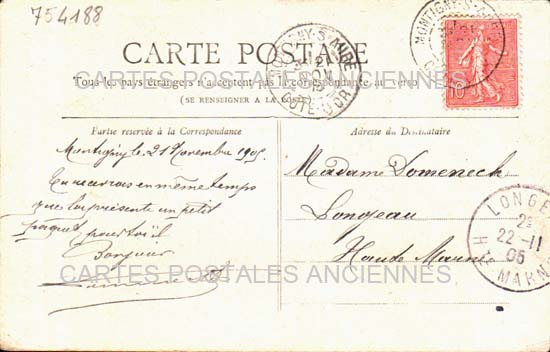 754188
CARTE POSTALE
Tous les pays étrangers n'acceptent pas la correspondance au verso
(SE RENSEIGNER A LA POSTE)
MONTIGNY-S-AUBE
21 NOV 05
COTE D'OR
MONTIGNY-S-AUBE
10
Partie reservée à la Correspondance
Montigny le 21 Novembre 1905
Tu recevras en même temps
que la présente un petit
paquet pour toi
Bonjour
Adresse du Destinataire
Madame Domenech
Longeau
Haute Marne
LONGEAU
22-11
05
HTE MARNE
CARTES POSTALES ANCIENNES
CARTES POSTALES ANCIENNES